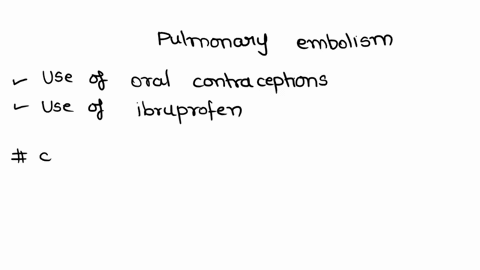 Pulmonary embolism
✓ Use of oral contracephons
✓ Use of ibruprofen
# c